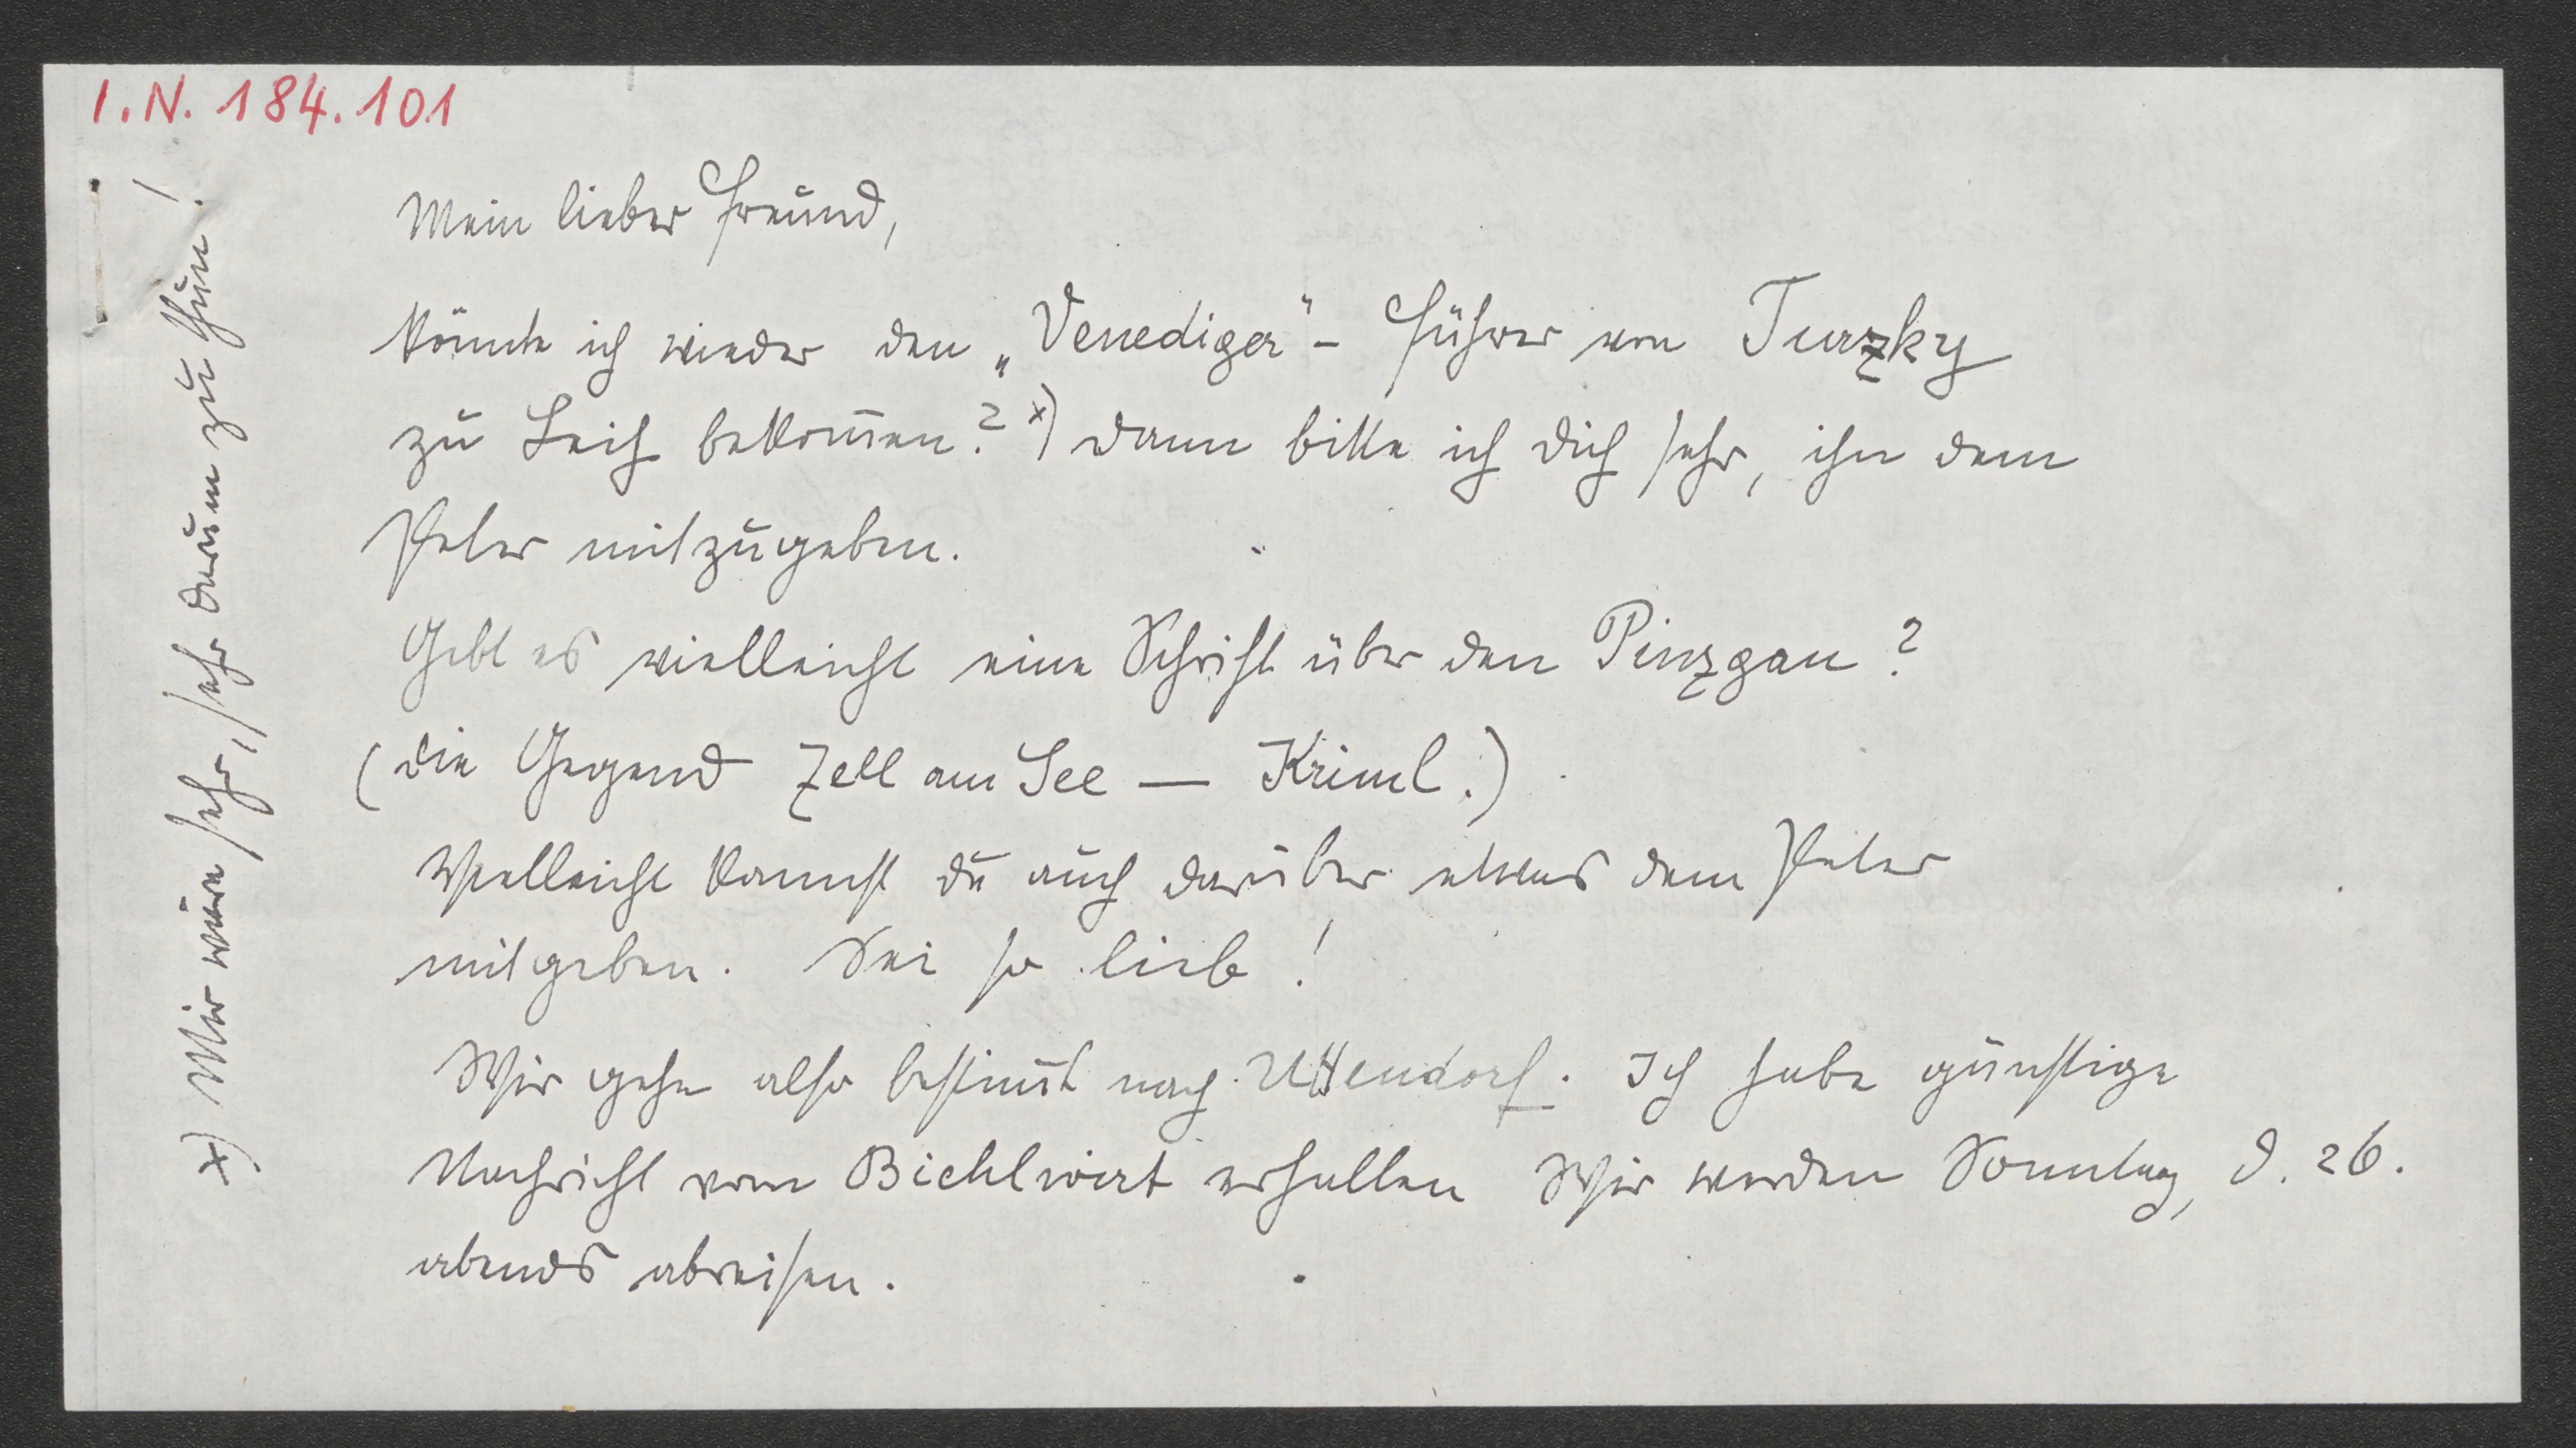 I.N. 184.101
Mein lieber Freund,
könnte ich wieder den „Venediger“- Führer von Turzky
zu Leih bekom̅en? x) dann bitte ich dich sehr, ihn dem
Peter mitzugeben.
Gibt es vielleicht eine Schrift über den Pinzgau?
(die Gegend Zell am See — Kriml.)
Vielleicht kannst du auch darüber etwas dem Peter
mitgeben. Sei so lieb!
Wir gehn also bestim̅t nach Uttendorf. Ich habe günstige
Nachricht vom Bichlwirt erhalten Wir werden Sonntag, d. 26.
abends abreisen.
x) Mir wäre sehr, sehr darum zu thun!